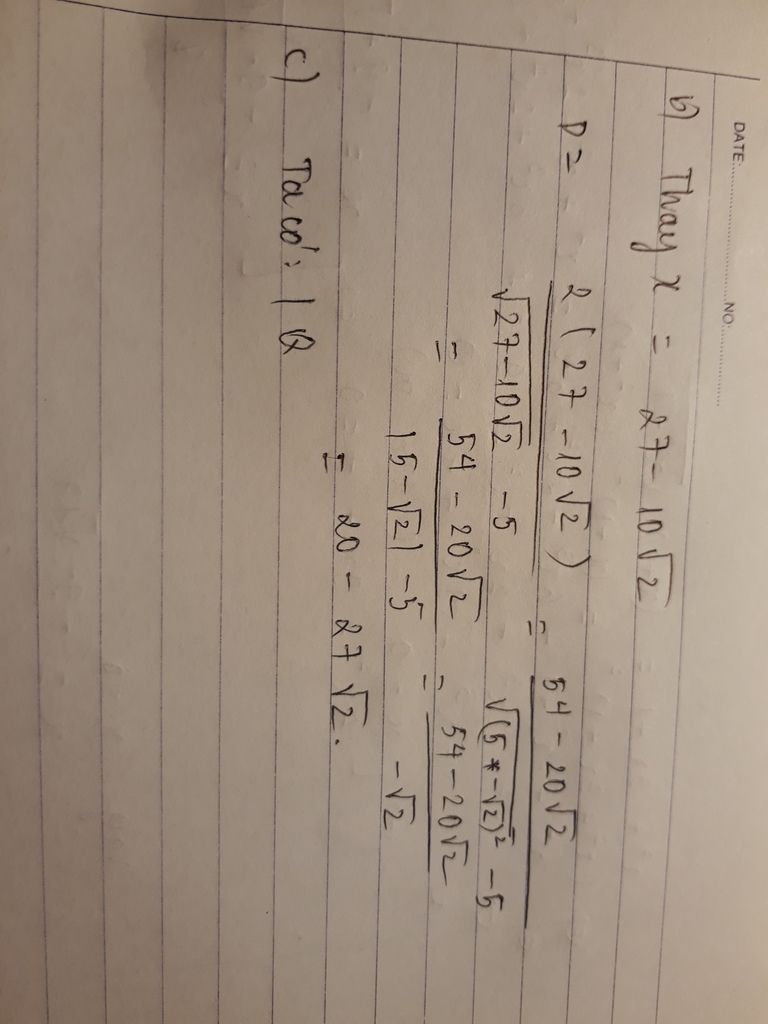 DATE:............................NO:....................
b) Thay x = 27 - 10√2
P = 2(27 - 10√2) / (√(27 - 10√2) - 5) = (54 - 20√2) / (√(5 * - √2)² - 5)
= (54 - 20√2) / (|5 - √2| - 5) = (54 - 20√2) / (-√2)
= 20 - 27√2.
c) Ta có: | Q